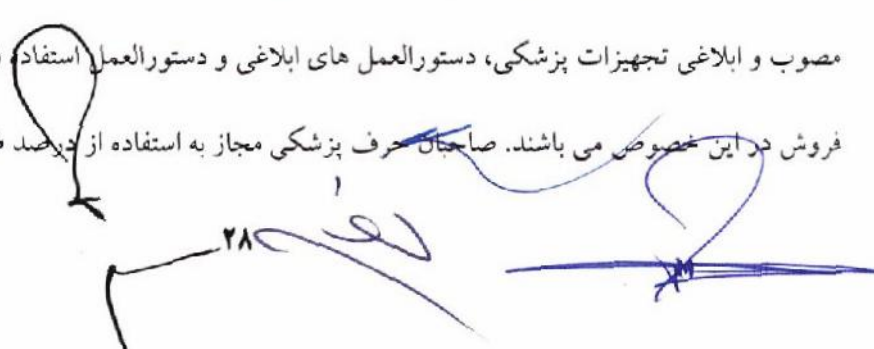 مصوب و ابلاغی تجهیزات پزشکی، دستورالعمل های ابلاغی و دستورالعمل استفاده
فروش در این خصوص می باشند. صاحبان حرف پزشکی مجاز به استفاده از درصد
۲۸